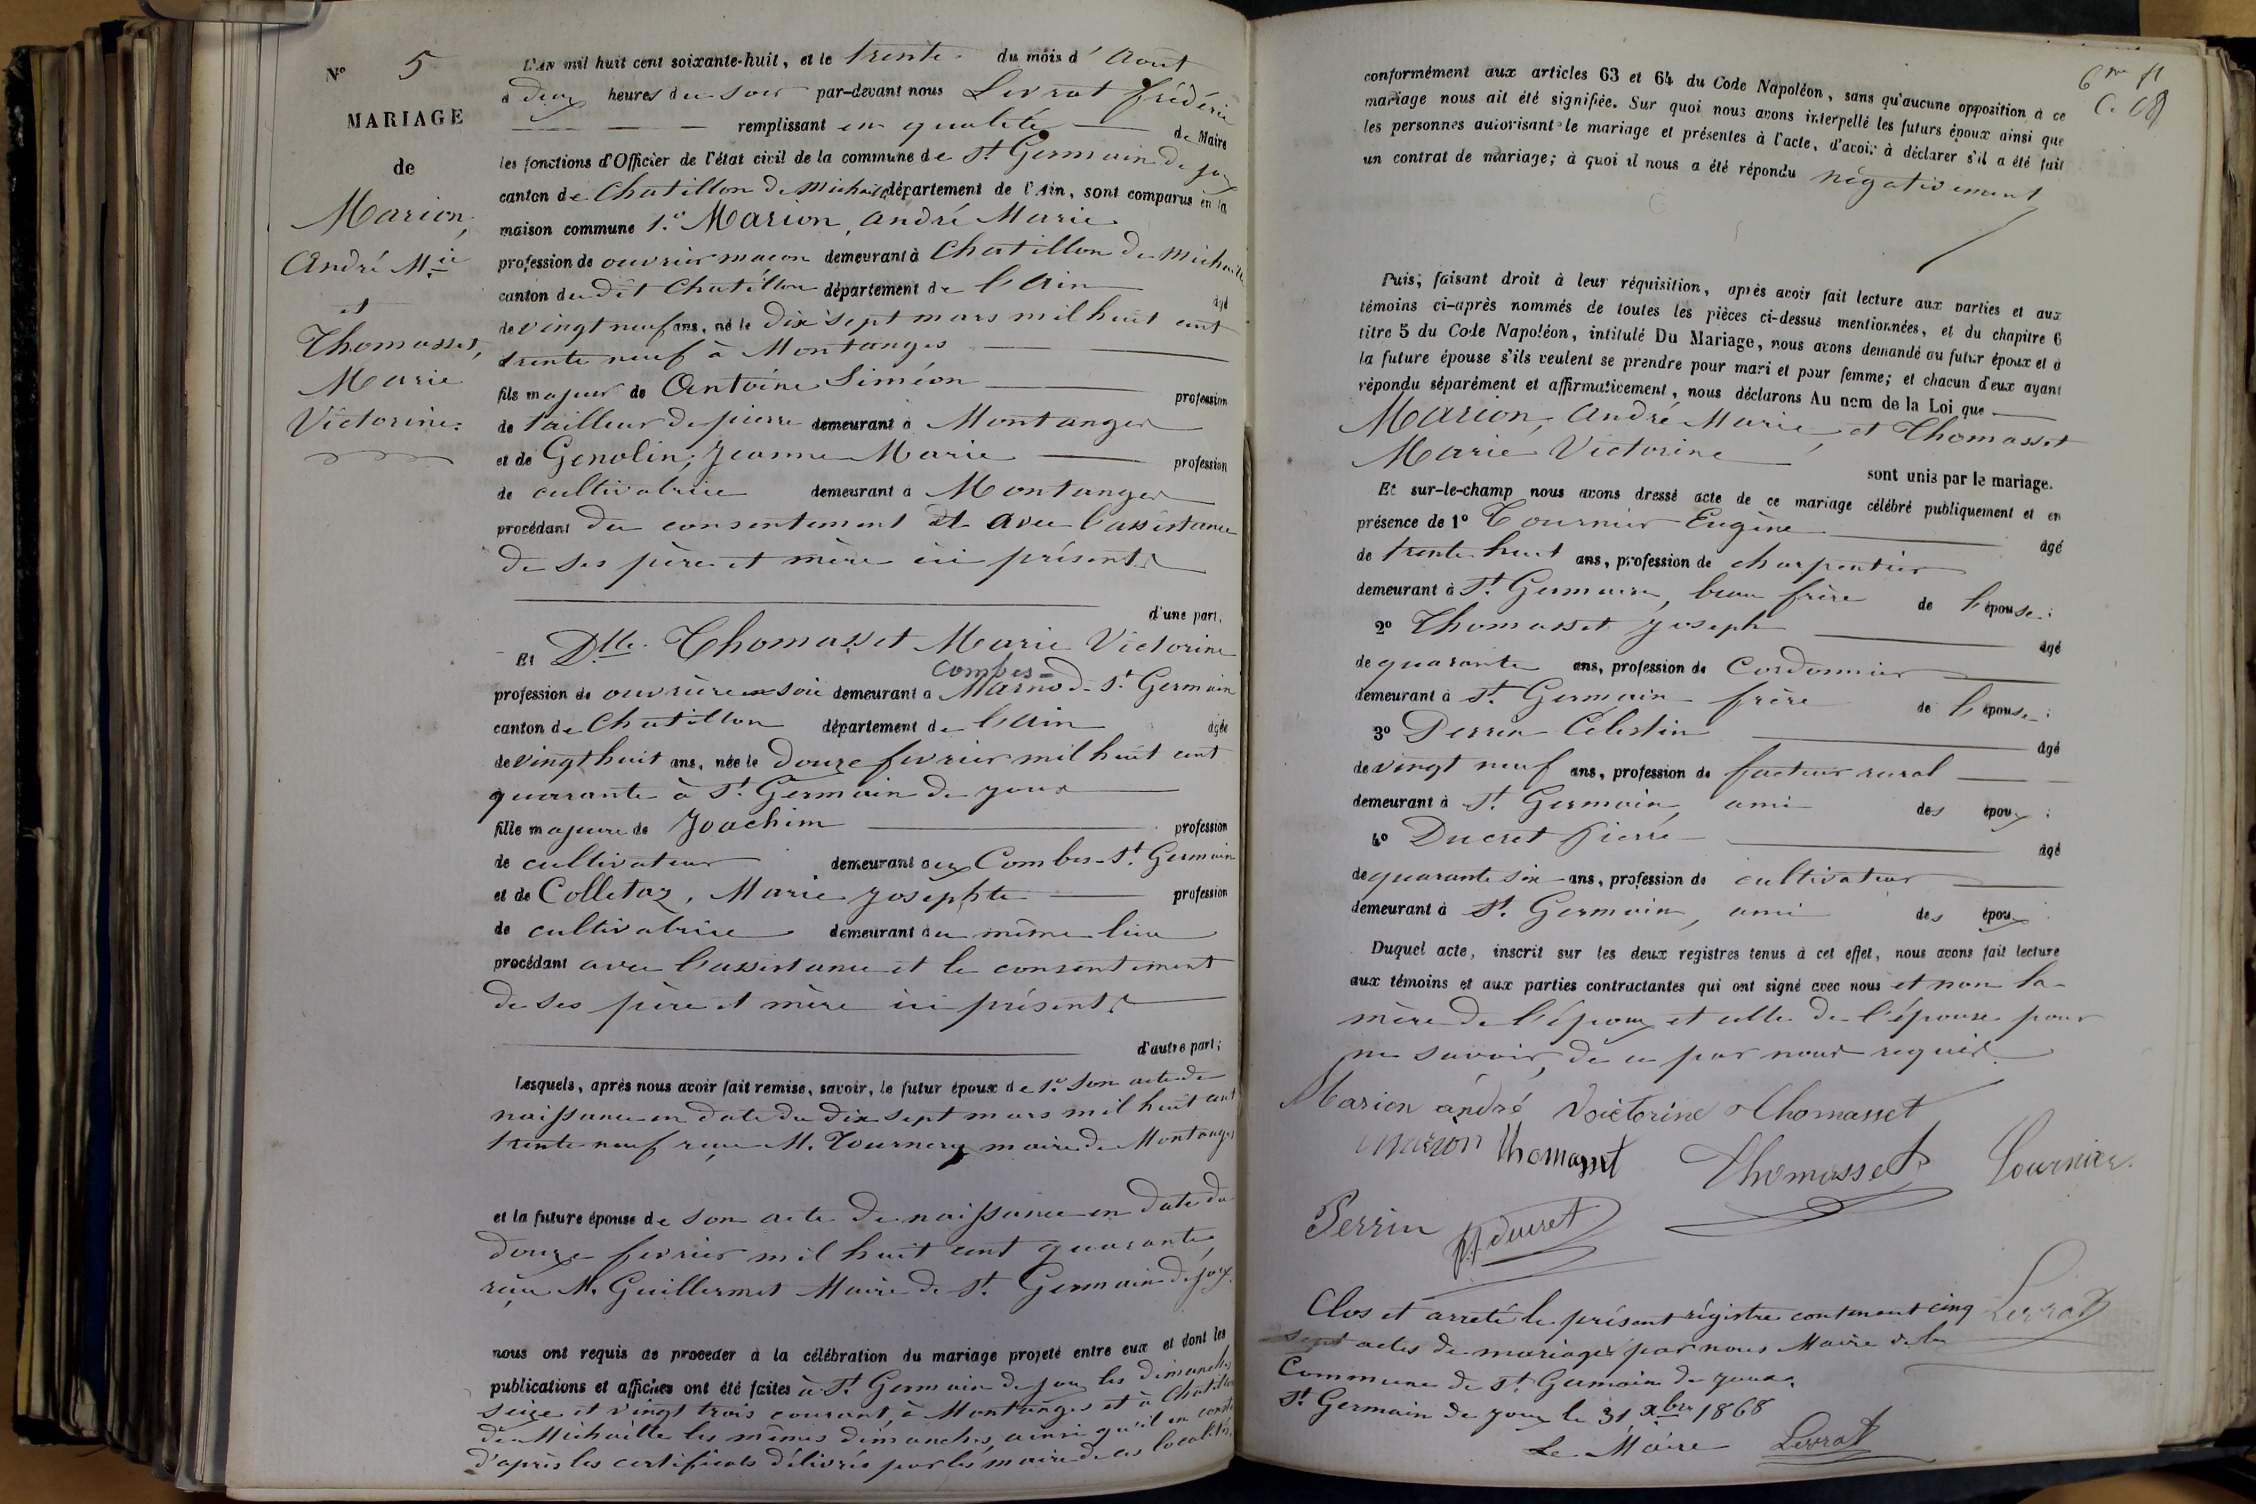 N° 5
MARIAGE
de
Marion,
André Mie
et
Thomasset,
Marie
Victorine.
L'AN mil huit cent soixante-huit, et le trente du mois d'Aout
à deux heures du soir par-devant nous Livrat frédéric
remplissant en qualité de Maire
les fonctions d'Officier de l'état civil de la commune de St. Germain de joux
canton de Chatillon de Michaille département de l'Ain, sont comparus en la
maison commune 1.° Marion, André Marie
profession de ouvrier maçon demeurant à Chatillon de Michaille
canton du dit Chatillon département de l'Ain âgé
de vingt neuf ans, né le dix sept mars mil huit cent
trente neuf à Montanges
fils majeur de Antoine Siméon profession
de tailleur de pierre demeurant à Montanges
et de Genolin, Jeanne Marie profession
de cultivatrice demeurant à Montanges
procédant du consentement et avec l'assistance
de ses père et mère ici présents
d'une part,
Et Dlle. Thomasset Marie Victorine
Combes =
profession de ouvrière en soie demeurant à Marnod - St Germain
canton de Chatillon département de l'Ain âgée
de vingt huit ans, née le douze fevrier mil huit cent
quarante à St. Germain de joux
fille majeure de Joachim profession
de cultivateur demeurant aux Combes - St. Germain
et de Colletaz, Marie Josephte profession
de cultivatrice demeurant au même lieu
procédant avec l'assistance et le consentement
de ses père et mère ici présents
d'autre part;
Lesquels, après nous avoir fait remise, savoir, le futur époux de 1.° Son acte de
naissance en date du dix sept mars mil huit cent
trente neuf reçu M. Tournery maire de Montanges
et la future épouse de son acte de naissance en date du
douze fevrier mil huit cent quarante,
reçu M. Guillermet Maire de St. Germain de joux.
nous ont requis de proceder à la célébration du mariage projeté entre eux et dont les
publications et affiches ont été faites à St. Germain de joux les dimanches
seize et vingt trois courant, à Montanges et à Chatillon
de Michaille les mêmes dimanches, ainsi qu'il en conste
d'après les certificats délivrés par les maires de ces localités,
6me ft
C. 68
conformément aux articles 63 et 64 du Code Napoléon, sans qu'aucune opposition à ce
mariage nous ait été signifiée. Sur quoi nous avons interpellé les futurs époux ainsi que
les personnes autorisant le mariage et présentes à l'acte, d'avoir à déclarer s'il a été fait
un contrat de mariage; à quoi il nous a été répondu négativement
Puis, faisant droit à leur réquisition, après avoir fait lecture aux parties et aux
témoins ci-après nommés de toutes les pièces ci-dessus mentionnées, et du chapitre 6
titre 5 du Code Napoléon, intitulé Du Mariage, nous avons demandé au futur époux et à
la future épouse s'ils veulent se prendre pour mari et pour femme; et chacun d'eux ayant
répondu séparément et affirmativement, nous déclarons Au nom de la Loi que
Marion, André Marie, et Thomasset
Marie Victorine
sont unis par le mariage.
Et sur-le-champ nous avons dressé acte de ce mariage célébré publiquement et en
présence de 1° Tournier Eugène âgé
de trente huit ans, profession de charpentier
demeurant à St. Germain, beau frère de l'épouse;
2° Thomasset Joseph âgé
de quarante ans, profession de Cordonnier
demeurant à St. Germain frère de l'épouse;
3° Perrin Célestin âgé
de vingt neuf ans, profession de facteur rural
demeurant à St. Germain, ami des époux;
4° Ducret Pierre âgé
de quarante six ans, profession de cultivateur
demeurant à St. Germain, ami des époux
Duquel acte, inscrit sur les deux registres tenus à cet effet, nous avons fait lecture
aux témoins et aux parties contractantes qui ont signé avec nous et non la
mère de l'époux et celle de l'épouse pour
ne savoir, de ce par nous requis.
Marion andré Voictorine Thomasset
Marion Thomasset Thomasset Tournier
Perrin ducret
Livrat
Clos et arreté le présent régistre contenant cinq
sept actes de mariages par nous Maire de la
Commune de St. Germain de joux.
St. Germain de joux le 31 xbre 1868
Le Maire Livrat